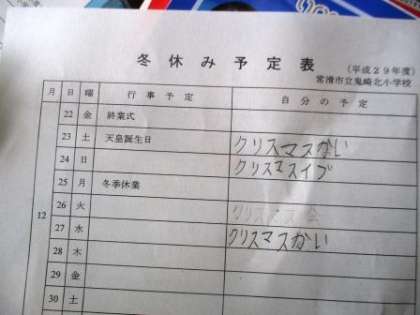 冬休み予定表
(平成29年度)
常滑市立鬼崎北小学校
月 日 曜 行事予定 自分の予定
22 金 終業式
23 土 天皇誕生日 クリスマスかい
24 日 クリスマスイブ
25 月 冬季休業
26 火 クリスマス会
12 27 水 クリスマスかい
28 木
29 金
30 土